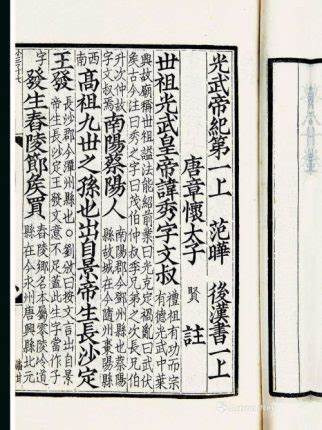 光武帝紀第一上 范曄 後漢書一上
唐章懷大子 賢 註
世祖光武皇帝諱秀字文叔 禮祖有功而宗有德光武中葉
興故廟稱世祖謚法能紹前業曰光克定禍亂曰武伏侯古今注曰秀之字曰茂伯仲叔季兄弟之次長兄伯
升次仲故字文叔焉 南陽蔡陽人 南陽郡今鄧州縣也蔡陽縣故城在今隨州棗陽縣
西南 高祖九世之孫也出自景帝生長沙定
王發 長沙郡今潭州縣也劉攽曰按文言出自景帝生長沙定王發文意不足蓋此生字當作子
字 發生舂陵節侯買 舂陵鄉名本屬零陵泠道縣在今永州唐興縣北元